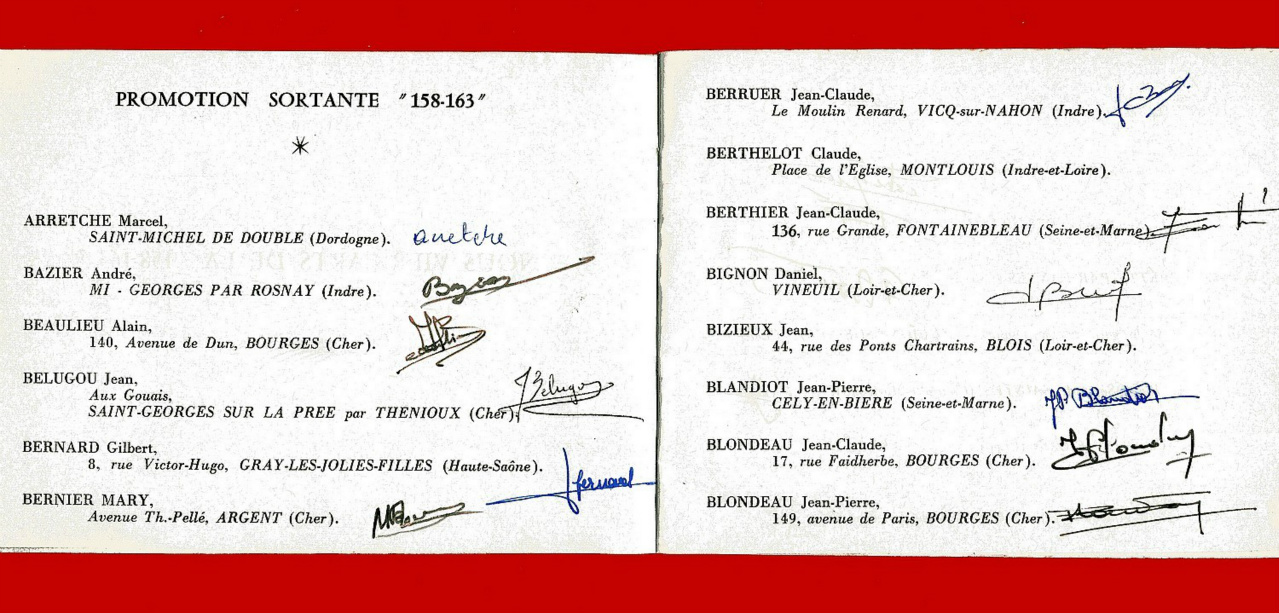 PROMOTION SORTANTE "158-163"
ARRETCHE Marcel,
SAINT-MICHEL DE DOUBLE (Dordogne). arretche
BAZIER André,
MI - GEORGES PAR ROSNAY (Indre). Bazier
BEAULIEU Alain,
140, Avenue de Dun, BOURGES (Cher).
BELUGOU Jean,
Aux Gouais,
SAINT-GEORGES SUR LA PREE par THENIOUX (Cher). JBelugou
BERNARD Gilbert,
8, rue Victor-Hugo, GRAY-LES-JOLIES-FILLES (Haute-Saône). Bernard
BERNIER MARY,
Avenue Th.-Pellé, ARGENT (Cher).
BERRUER Jean-Claude,
Le Moulin Renard, VICQ-sur-NAHON (Indre).
BERTHELOT Claude,
Place de l'Eglise, MONTLOUIS (Indre-et-Loire).
BERTHIER Jean-Claude,
136, rue Grande, FONTAINEBLEAU (Seine-et-Marne).
BIGNON Daniel,
VINEUIL (Loir-et-Cher).
BIZIEUX Jean,
44, rue des Ponts Chartrains, BLOIS (Loir-et-Cher).
BLANDIOT Jean-Pierre,
CELY-EN-BIERE (Seine-et-Marne). JP Blandiot
BLONDEAU Jean-Claude,
17, rue Faidherbe, BOURGES (Cher).
BLONDEAU Jean-Pierre,
149, avenue de Paris, BOURGES (Cher).